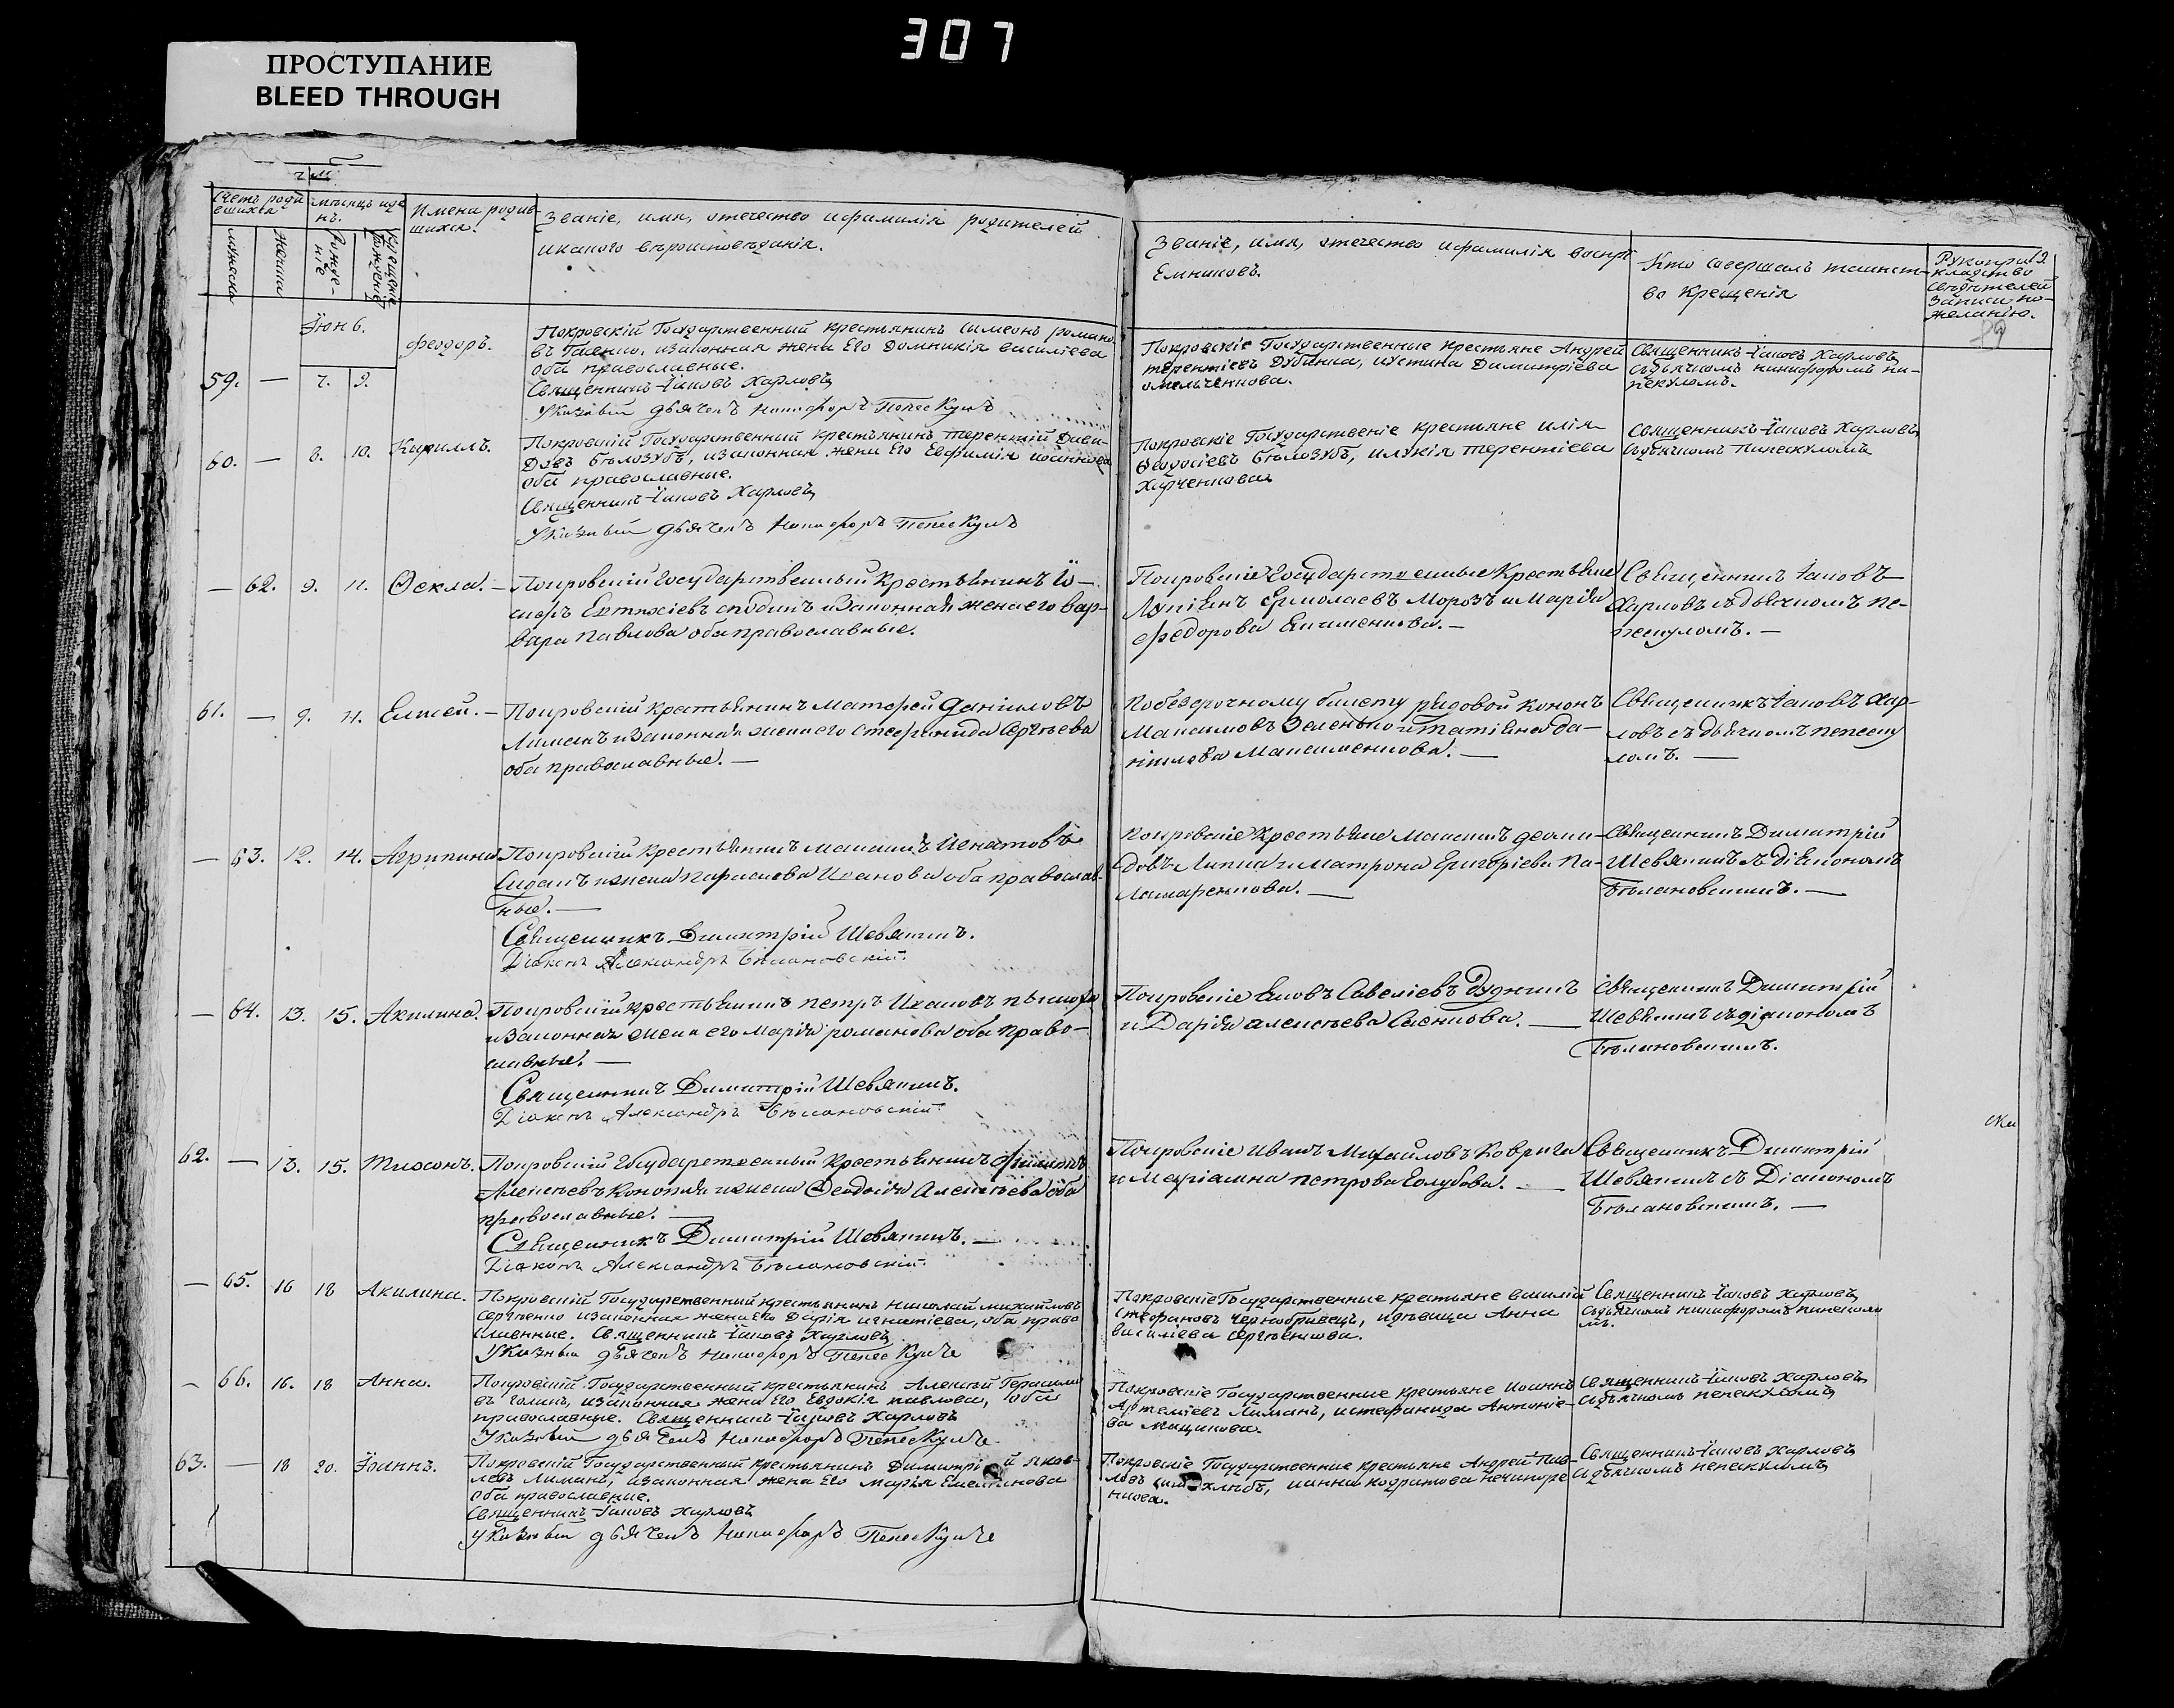 307
ПРОСТУПАНИЕ
BLEED THROUGH
Счетъ роди
вшихся
мѣсяцъ иде
нь.
Имена родив-
шихся.
Званіе, имя, отечество ифамилія родителей
икакого вѣроисповѣданія.
Мужеска
Женска
Рожде-
ніе
Крещеніе
Званіе, имя, отечество ифамилія воспрі
Емниковъ.
Кто совершалъ таинст-
во Крещенія
Рукопри
кладство
свѣдѣтелей
записи по-
желанію.
89
Іюнь.
59. — 7. 9.
Феодоръ.
Покровскій Государственный крестьянинъ Симеонъ романо
въ изаконная жена Его Домникія василіева
оба православные.
Священникъ Іаковъ Харловъ
Указный дьячекъ Никифоръ Пепескулъ
Покровскіе Государственные крестьяне Андрей
терентіевъ Дубинка, иустина Димитріева
омельченкова.
Священникъ Іаковъ Харловъ
сдьячкомъ никифоромъ пи-
пекуломъ.
60. — 8. 10. Кириллъ.
Покровскій Государственный крестьянинъ терентій Дави-
довъ бѣлозубъ, изаконная жена Его Евфимія иоаннова
оба православные.
Священникъ Іаковъ Харловъ
Указный дьячекъ Никифоръ Пепескулъ
Покровскіе Государственіе крестьяне илія
Феодосіевъ бѣлозубъ, илукія терентіева
Харченкова
Священникъ Іаковъ Харловъ
сдьячкомъ Пипескуломъ
— 62. 9. 11. Ѳекла. —
Покровскій Государственный Крестьянинъ Іо-
сифъ Евтихіевъ сподинъ иЗаконная жена его вар-
вара Павлова оба православные.
Покровскіе Государственные Крестьяне
Лукіянъ Ермолаевъ Морозъ и Марія
федорова Якименкова. —
Священникъ Іаковъ
Харловъ съдьячкомъ пе-
пескуломъ. —
61. — 9. 11. Елисей. —
Покровскій крестьянинъ Матфей Даніиловъ
Лиманъ иЗаконная жена его Стефанида Сергѣева
оба православные. —
По безсрочному билету рядовой Кононъ
Максимовъ Зеленько и татіяна Да-
нилова Максименкова. —
Священникъ Іаковъ Хар-
ловъ съ дьячкомъ пепеску
ломъ. —
— 63. 12. 14. Агрипина
Покровскій крестьянинъ Максимъ Игнатовъ
ижена параскова Иванова оба православ-
ные. —
Священникъ Димитрій Шевякинъ.
Діаконъ Александръ Бѣлановскій.
Покровскіе Крестьяне Максимъ деми-
довъ Липка и Матрона Григоріева Па-
ламаренкова. —
Священникъ Димитрій
Шевякинъ съ діякономъ
Бѣлановскимъ. —
— 64. 13. 15. Акилина.
Покровскій крестьянинъ петръ Ивановъ
иЗаконная жена его Марія романова оба право-
славные. —
Священникъ Димитрій Шевякинъ.
Діаконъ Александръ Бѣлановскій.
Покровскіе Яковъ Савеліевъ Дудкинъ
и Дарія алексѣева Саенкова. —
Священникъ Димитрій
Шевякинъ съдіякономъ
Бѣлановскимъ.
62. — 13. 15. Тихонъ.
Покровскій Государственный Крестьянинъ Филипъ
Алексѣевъ Конопля ижена Ѳеодосія Алексѣева оба
православные. —
Священникъ Димитрій Шевякинъ. —
Діаконъ Александръ Бѣлановскій.
Покровскіе Иванъ Михайловъ Коврига
и Маріамна петрова Голубова. —
Священникъ Димитрій
Шевякинъ съ Діакономъ
Бѣлановскимъ. —
— 65. 16 18 Акилина.
Покровскій Государственный крестьянинъ николай михайловъ
сергѣенко изаконная жена Его Дарія игнатіева, оба право
славные. Священникъ Іаковъ Харловъ
Указный дьячекъ Никифоръ Пепескулъ
Покровскіе Государственные крестьяне василій
Стефановъ чернобривецъ, идѣвица Анна
василіева сергѣенкова.
Священникъ Іаковъ Харловъ
сдьячкомъ никифоромъ пипескуло
мъ.
— 66. 16. 18 Анна.
Покровскій Государственный крестьянинъ Алексѣй Герасимо
въ Голикъ, изаконная жена Его Евдокія павлова, оба
православные. Священникъ Іаковъ Харловъ
Указный дьячекъ Никифоръ Пепескулъ
Покровскіе Государственные крестьяне Иоаннъ
Артеміевъ Лиманъ, истефанида Антоніе-
ва
Священникъ Іаковъ Харловъ
сдьячкомъ пепескуломъ
63. — 18 20. Іоаннъ.
Покровскій Государственный крестьянинъ Димитрій Яков-
левъ Лиманъ, изаконная жена Его Марія Емелянова
оба православные.
Священникъ Іаковъ Харловъ
Указный дьячекъ Никифоръ Пепескулъ
Покровскіе Государственные крестьяне Андрей Пав-
ловъ ианна кодратова нечипоре
нкова.
Священникъ Іаковъ Харловъ
сдьячкомъ пепескуломъ